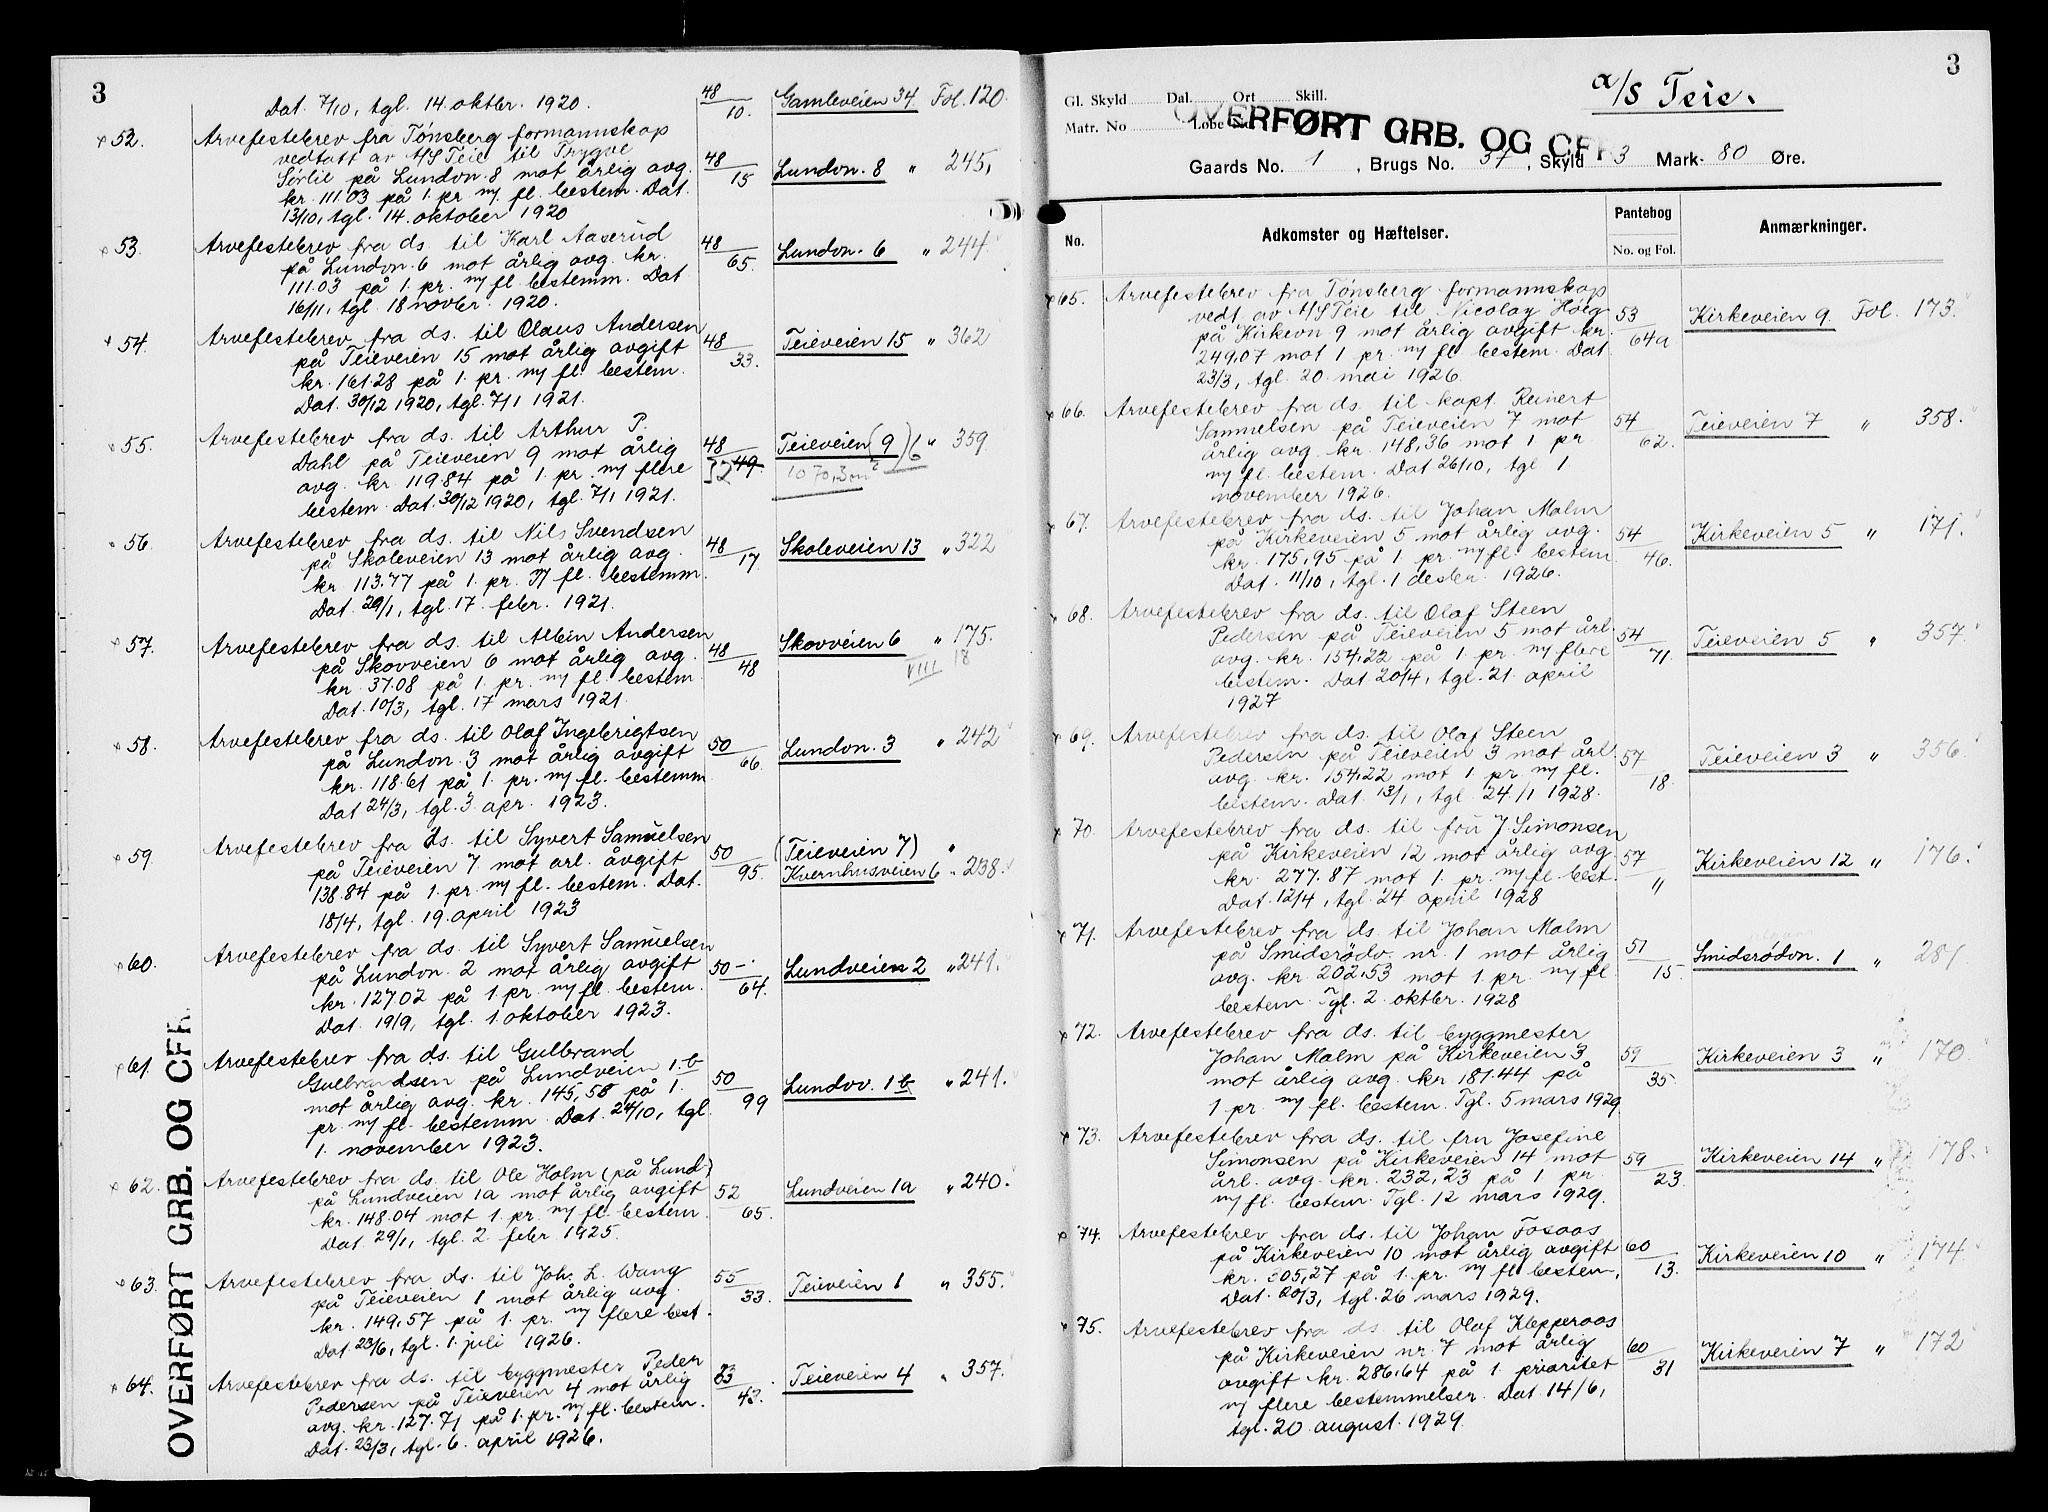 3
Dat. 7/10, tgl. 14. oktbr. 1920. 48/10. Gamleveien 34 Fol. 120.
52. Arvefestebrev fra Tönsberg formannskap
vedtatt av A/S Teie til Trygve
Sørlie på Lundvn. 8 mot årlig avg. 48/15 Lundvn. 8 " 245,
kr. 111.03 på 1. pr. m/ fl. bestem. Dat.
13/10, tgl. 14. oktober 1920
53. Arvefestebrev fra ds. til Karl Aaserud 48/65. Lundvn. 6 " 244.
på Lundvn. 6 mot årlig avg. kr.
111.03 på 1. pr. m/ fl. bestemm. Dat
16/11, tgl. 18 novbr. 1920.
54. Arvefestebrev fra ds. til Olaus Andersen 48/33. Teieveien 15 " 362
på Teieveien 15 mot årlig avgift
kr. 161.28 på 1. pr. m/ fl. bestem.
Dat. 30/12 1920, tgl. 7/1 1921.
55. Arvefestebrev fra ds. til Arthur P.
Dahl på Teieveien 9 mot årlig 48/32 49. Teieveien (9) 6 " 359
avg. kr. 119.84 på 1. pr. m/ flere 1070,3m²
bestem. Dat. 30/12 1920, tgl. 7/1 1921.
56. Arvefestebrev fra ds. til Nils Svendsen
på Skoleveien 13 mot årlig avg. 48/17. Skoleveien 13 " 322
kr. 113.77 på 1. pr. m/ fl. bestemm.
Dat. 29/1, tgl. 17. febr. 1921.
57. Arvefestebrev fra ds. til Albin Andersen 48/48 Skovveien 6 " 175.
på Skovveien 6 mot årlig avg. 18
kr. 37.08 på 1. pr. m/ fl. bestem. VIII
Dat. 10/3, tgl. 17 mars 1921.
58. Arvefestebrev fra ds. til Olaf Ingebrigtsen
på Lundvn. 3 mot årlig avgift 50/66. Lundvn. 3 " 242
kr. 118.61 på 1. pr. m/ fl. bestemm
Dat 24/3, tgl. 3. apr. 1923.
59 Arvefestebrev fra ds. til Syvert Samuelsen
på Teieveien 7. mot arl. avgift 50/95. (Teieveien 7) "
138.84 på 1. pr. m/ fl. bestem. Dat. Kvernhusveien 6 " 238.
18/4, tgl. 19. april 1923
60. Arvefestebrev fra ds. til Syvert Samuelsen
på Lundvn. 2 mot årlig avgift 50/64. Lundveien 2 " 241.
kr. 127.02 på 1. pr. m/ fl. bestem.
Dat. 19/9, tgl. 1. oktober 1923.
61. Arvefestebrev fra ds. til Gulbrand
Gulbrandsen på Lundveien 1. b 50/99 Lundvv. 1 b " 241.
mot årlig avg. kr. 145,58 på 1.
pr. m/ fl. bestemm. Dat. 24/10, tgl.
1. november 1923.
62. Arvefestebrev fra ds. til Ole Holm (på Lund)
på Lundveien 1a mot årlig avgift 52/65. Lundveien 1a " 240.
kr. 148.04 mot 1. pr. m/ fl. bestem.
Dat. 29/1, tgl. 2. febr 1925.
63. Arvefestebrev fra ds. til Joh. L. Wang 55/33. Teieveien 1 " 355.
på Teieveien 1 mot årlig avg.
kr. 149,57 på 1. pr. m/ flere best.
Dat. 23/6, tgl. 1. juli 1926.
64. Arvefestebrev fra ds. til byggmester Peder 53/42. Teieveien 4 " 357.
Pedersen på Teieveien 4 mot årlig
avg. kr. 127.71 på 1. pr. m/ fl. bestem.
Dat. 23/3, tgl. 6. april 1926.
OVERFØRT GRB. OG CFR.
3
A/S Teie.
Gl. Skyld Dal. Ort Skill.
Matr. No Løbe No
OVERFØRT GRB. OG CFR
Gaards No. 1, Brugs No. 37, Skyld 3 Mark 80 Øre.
No. Adkomster og Hæftelser. Pantebog No. og Fol. Anmærkninger.
65. Arvefestebrev fra Tönsberg formannskap
vedt. av A/S Teie til Nicolay Höeg 53/64a Kirkeveien 9. Fol. 173.
på Kirkevn 9 mot årlig avgift kr.
249.07 mot 1 pr. m/ fl bestem. Dat
23/3, tgl. 20. mai 1926.
66. Arvefestebrev fra ds. til kapt. Reinert
Samuelsen på Teieveien 7 mot 54/62. Teieveien 7 " 358.
årlig avg. kr. 148,36 mot 1 pr
m/ fl. bestem. Dat 26/10, tgl 1.
november 1926.
67. Arvefestebrev fra ds. til Johan Malm
på Kirkeveien 5 mot årlig avg. 54/46. Kirkeveien 5 " 171.
kr. 175,95 på 1. pr. m/ fl. bestem
Dat. 11/10, tgl. 1 desbr. 1926.
68. Arvefestebrev fra ds. til Olaf Steen
Pedersen på Teieveien 5 mot årl. 54/71. Teieveien 5 " 357.
avg. kr. 154.22 på 1. pr. m/ flere
bestem. Dat 20/4, tgl. 21. april
1927
69. Arvefestebrev fra ds. til Olaf Steen
Pedersen på Teieveien 3 mot årl. 57/18. Teieveien 3 " 356.
avg. kr. 154.22 mot 1 pr. m/ fl.
bestem. Dat. 13/1, tgl. 24/1 1928.
70. Arvefestebrev fra ds. til fru J. Simonsen
på Kirkeveien 12 mot årlig avg. 57/" Kirkeveien 12 " 176.
kr. 277.87 mot 1. pr. m/ fl. best.
Dat. 12/4, tgl. 24 april 1928
71. Arvefestebrev fra ds. til Johan Malm
på Smidsrödv. nr. 1 mot årlig 51/15. Smidsrødvn. 1 " 281
avg. kr. 202,53 mot 1. pr. m/ fl
bestem. Tgl. 2. oktbr. 1928
72. Arvefestebrev fra ds. til byggmester
Johan Malm på Kirkeveien 3 59/35. Kirkeveien 3 " 170.
mot årlig avg. kr 181.44 på
1 pr. m/ fl. bestem. Tgl. 5 mars 1929
73. Arvefestebrev fra ds. til fru Josefine
Simonsen på Kirkeveien 14 mot 59/23. Kirkeveien 14 " 178.
årl. avg. kr. 232,23 på 1 pr
m/ fl. bestem. Tgl. 12 mars 1929.
74. Arvefestebrev fra ds. til Johan Fosaas
på Kirkeveien 10 mot årlig avgift 60/13. Kirkeveien 10 " 174
kr. 305,27 på 1. pr. m/ fl bestem,
Dat. 20/3, tgl. 26 mars 1929.
75. Arvefestebrev fra ds til Olaf Klepperaas
på Kirkeveien nr. 7 mot årlig 60/31 Kirkeveien 7 " 172
avgift kr. 286.64 på 1. prioritet
m/ flere bestemmelser. Dat. 14/6,
tgl. 20 august. 1929.